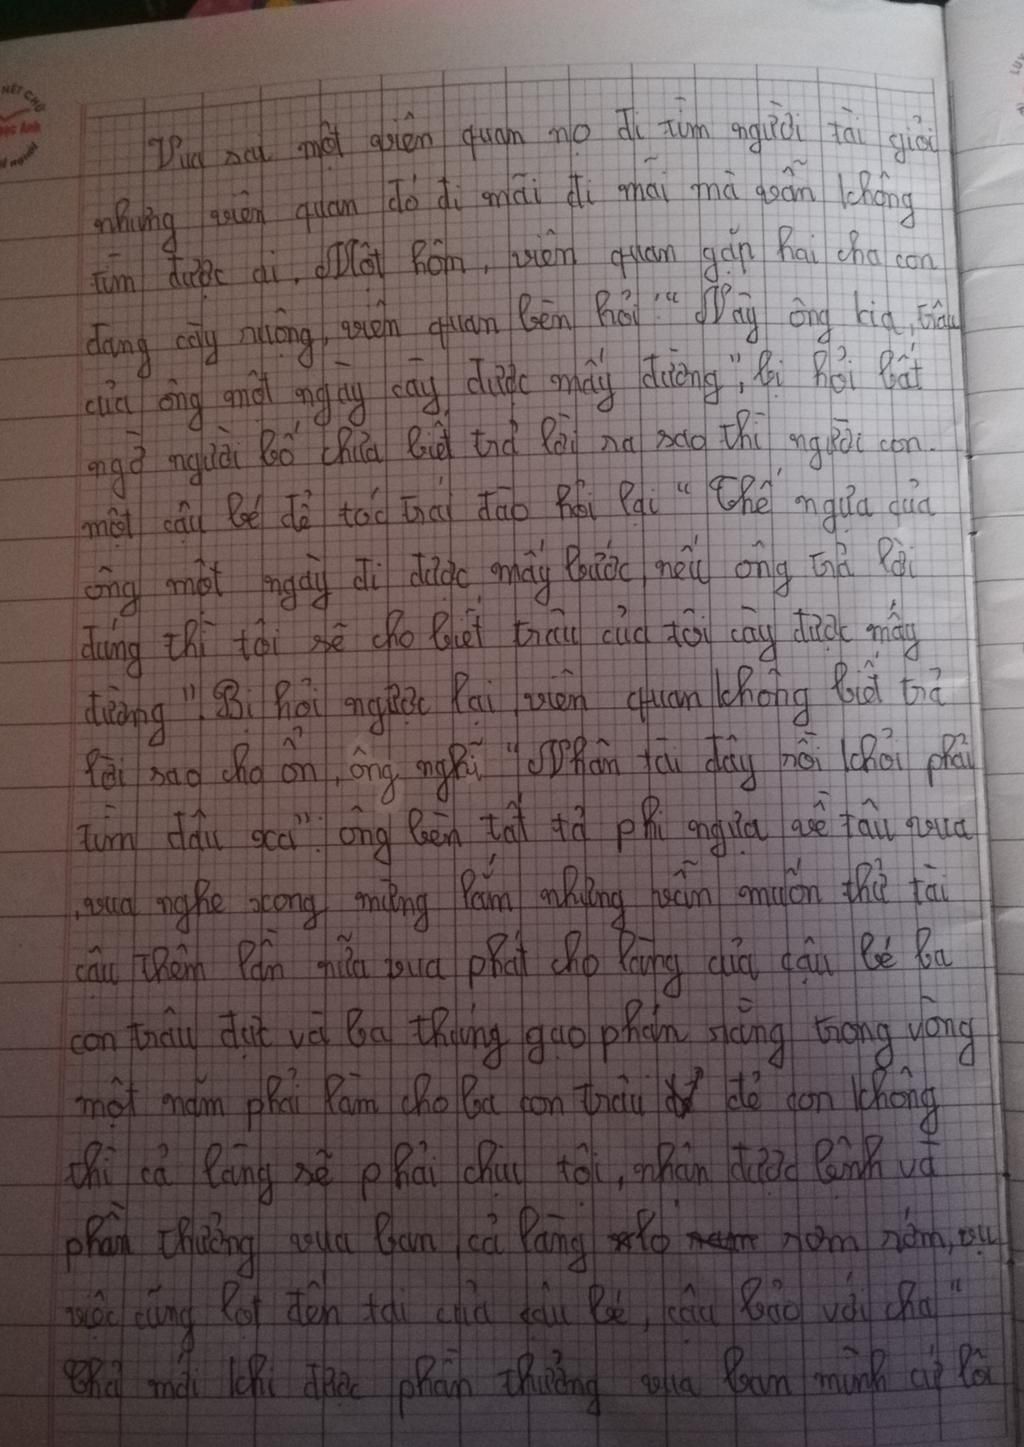 NÉT CHỮ
Vua sai một viên quan nọ đi tìm người tài giỏi
nhưng viên quan đó đi mãi đi mãi mà vẫn không
tìm được ai. Một hôm, viên quan gặp hai cha con
đang cày ruộng, viên quan bèn hỏi "Này ông kia, trâu
của ông một ngày cày được mấy đường", bị hỏi bất
ngờ người bố chưa biết trả lời ra sao thì người con.
một cậu bé để tóc trái đào hỏi lại "Thế ngựa của
ông một ngày đi được mấy bước, nếu ông trả lời
đúng thì tôi sẽ cho biết trâu của tôi cày được mấy
đường". Bị hỏi ngược lại viên quan không biết trả
lời sao cho ổn, ông nghĩ "Nhân tài đây rồi khỏi phải
tìm đâu xa". ông bèn tất tả phi ngựa về tâu vua
, vua nghe xong mừng lắm nhưng vẫn muốn thử tài
cậu thêm lần nữa vua phát cho làng của cậu bé ba
con trâu đực và ba thúng gạo phán rằng trong vòng
một năm phải làm cho ba con trâu đẻ con không
thì cả làng sẽ phải chịu tội, nhận được lệnh và
phần thưởng vua ban cả làng lo nơm nớm,
việc cũng lọt đến tai của cậu bé, cậu bảo với cha "
Cha mấy khi được phần thưởng vua ban mình cứ lôi